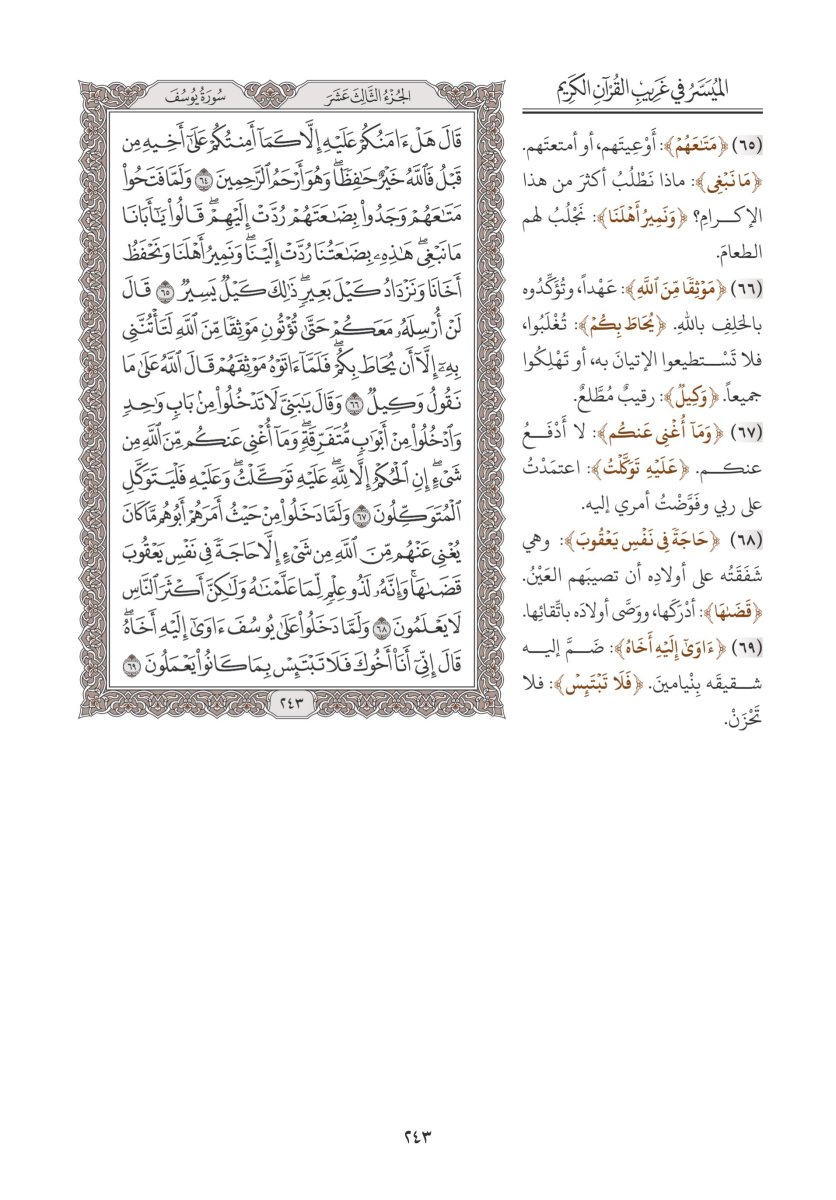 الميسر في غريب القرآن الكريم
(٦٥) ﴿مَتَٰعَهُمۡ﴾: أَوْعِيتَهم، أو أمتعتَهم.
﴿مَا نَبۡغِي﴾: ماذا نَطْلُبُ أكثرَ من هذا
الإكــرامِ؟ ﴿وَنَمِيرُ أَهۡلَنَا﴾: نَجْلُبُ لهم
الطعامَ.
(٦٦) ﴿مَوۡثِقٗا مِّنَ ٱللَّهِ﴾: عَهْداً، وتُؤَكِّدُوه
بالحَلِفِ باللهِ. ﴿يُحَاطَ بِكُمۡ﴾: تُغْلَبُوا،
فلا تَسْـتطيعوا الإتيانَ به، أو تَهْلِكُوا
جميعاً. ﴿وَكِيلٞ﴾: رقيبٌ مُطَّلعٌ.
(٦٧) ﴿وَمَآ أُغۡنِي عَنكُم﴾: لا أَدْفَــعُ
عنكــم. ﴿عَلَيۡهِ تَوَكَّلۡتُ﴾: اعتمَدْتُ
على ربي وفَوَّضْتُ أمري إليه.
(٦٨) ﴿حَاجَةٗ فِي نَفۡسِ يَعۡقُوبَ﴾: وهي
شَفَقَتُه على أولادِه أن تصيبَهم العَيْنُ.
﴿قَضَىٰهَا﴾: أدْرَكَها، ووَصَّى أولادَه باتِّقائِها.
(٦٩) ﴿ءَاوَىٰٓ إِلَيۡهِ أَخَاهُ﴾: ضَــمَّ إليــه
شــقيقَه بِنْيامينَ. ﴿فَلَا تَبۡتَئِسۡ﴾: فلا
تَحْزَنْ.
الجزء الثالث عشر
سورة يوسف
قَالَ هَلۡ ءَامَنُكُمۡ عَلَيۡهِ إِلَّا كَمَآ أَمِنتُكُمۡ عَلَىٰٓ أَخِيهِ مِن
قَبۡلُ فَٱللَّهُ خَيۡرٌ حَٰفِظٗاۖ وَهُوَ أَرۡحَمُ ٱلرَّٰحِمِينَ ٦٤ وَلَمَّا فَتَحُواْ
مَتَٰعَهُمۡ وَجَدُواْ بِضَٰعَتَهُمۡ رُدَّتۡ إِلَيۡهِمۡۖ قَالُواْ يَٰٓأَبَانَا
مَا نَبۡغِيۖ هَٰذِهِۦ بِضَٰعَتُنَا رُدَّتۡ إِلَيۡنَاۖ وَنَمِيرُ أَهۡلَنَا وَنَحۡفَظُ
أَخَانَا وَنَزۡدَادُ كَيۡلَ بَعِيرٖۖ ذَٰلِكَ كَيۡلٞ يَسِيرٞ ٦٥ قَالَ
لَنۡ أُرۡسِلَهُۥ مَعَكُمۡ حَتَّىٰ تُؤۡتُونِ مَوۡثِقٗا مِّنَ ٱللَّهِ لَتَأۡتُنَّنِي
بِهِۦٓ إِلَّآ أَن يُحَاطَ بِكُمۡۖ فَلَمَّآ ءَاتَوۡهُ مَوۡثِقَهُمۡ قَالَ ٱللَّهُ عَلَىٰ مَا
نَقُولُ وَكِيلٞ ٦٦ وَقَالَ يَٰبَنِيَّ لَا تَدۡخُلُواْ مِنۢ بَابٖ وَٰحِدٖ
وَٱدۡخُلُواْ مِنۡ أَبۡوَٰبٖ مُّتَفَرِّقَةٖۖ وَمَآ أُغۡنِي عَنكُم مِّنَ ٱللَّهِ مِن
شَيۡءٍۖ إِنِ ٱلۡحُكۡمُ إِلَّا لِلَّهِۖ عَلَيۡهِ تَوَكَّلۡتُۖ وَعَلَيۡهِ فَلۡيَتَوَكَّلِ
ٱلۡمُتَوَكِّلُونَ ٦٧ وَلَمَّا دَخَلُواْ مِنۡ حَيۡثُ أَمَرَهُمۡ أَبُوهُم مَّا كَانَ
يُغۡنِي عَنۡهُم مِّنَ ٱللَّهِ مِن شَيۡءٍ إِلَّا حَاجَةٗ فِي نَفۡسِ يَعۡقُوبَ
قَضَىٰهَاۚ وَإِنَّهُۥ لَذُو عِلۡمٖ لِّمَا عَلَّمۡنَٰهُ وَلَٰكِنَّ أَكۡثَرَ ٱلنَّاسِ
لَا يَعۡلَمُونَ ٦٨ وَلَمَّا دَخَلُواْ عَلَىٰ يُوسُفَ ءَاوَىٰٓ إِلَيۡهِ أَخَاهُۖ
قَالَ إِنِّيٓ أَنَا۠ أَخُوكَ فَلَا تَبۡتَئِسۡ بِمَا كَانُواْ يَعۡمَلُونَ ٦٩
٢٤٣
٢٤٣